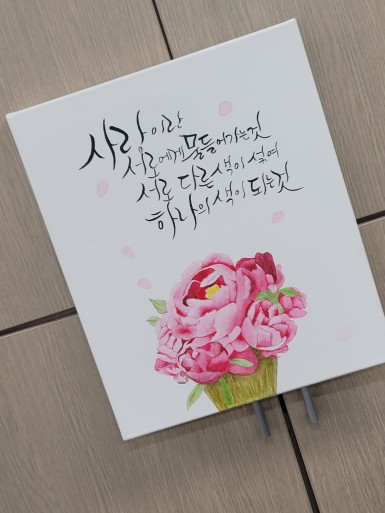 사랑이란
서로에게 물들어가는것
서로 다른 색이 섞여
하나의 색이 되는것